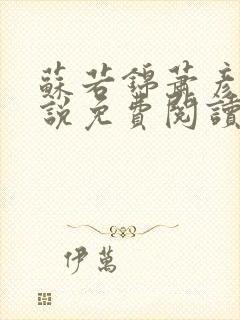 蘇若錦蕭彥
說免費閱讀
伊萬